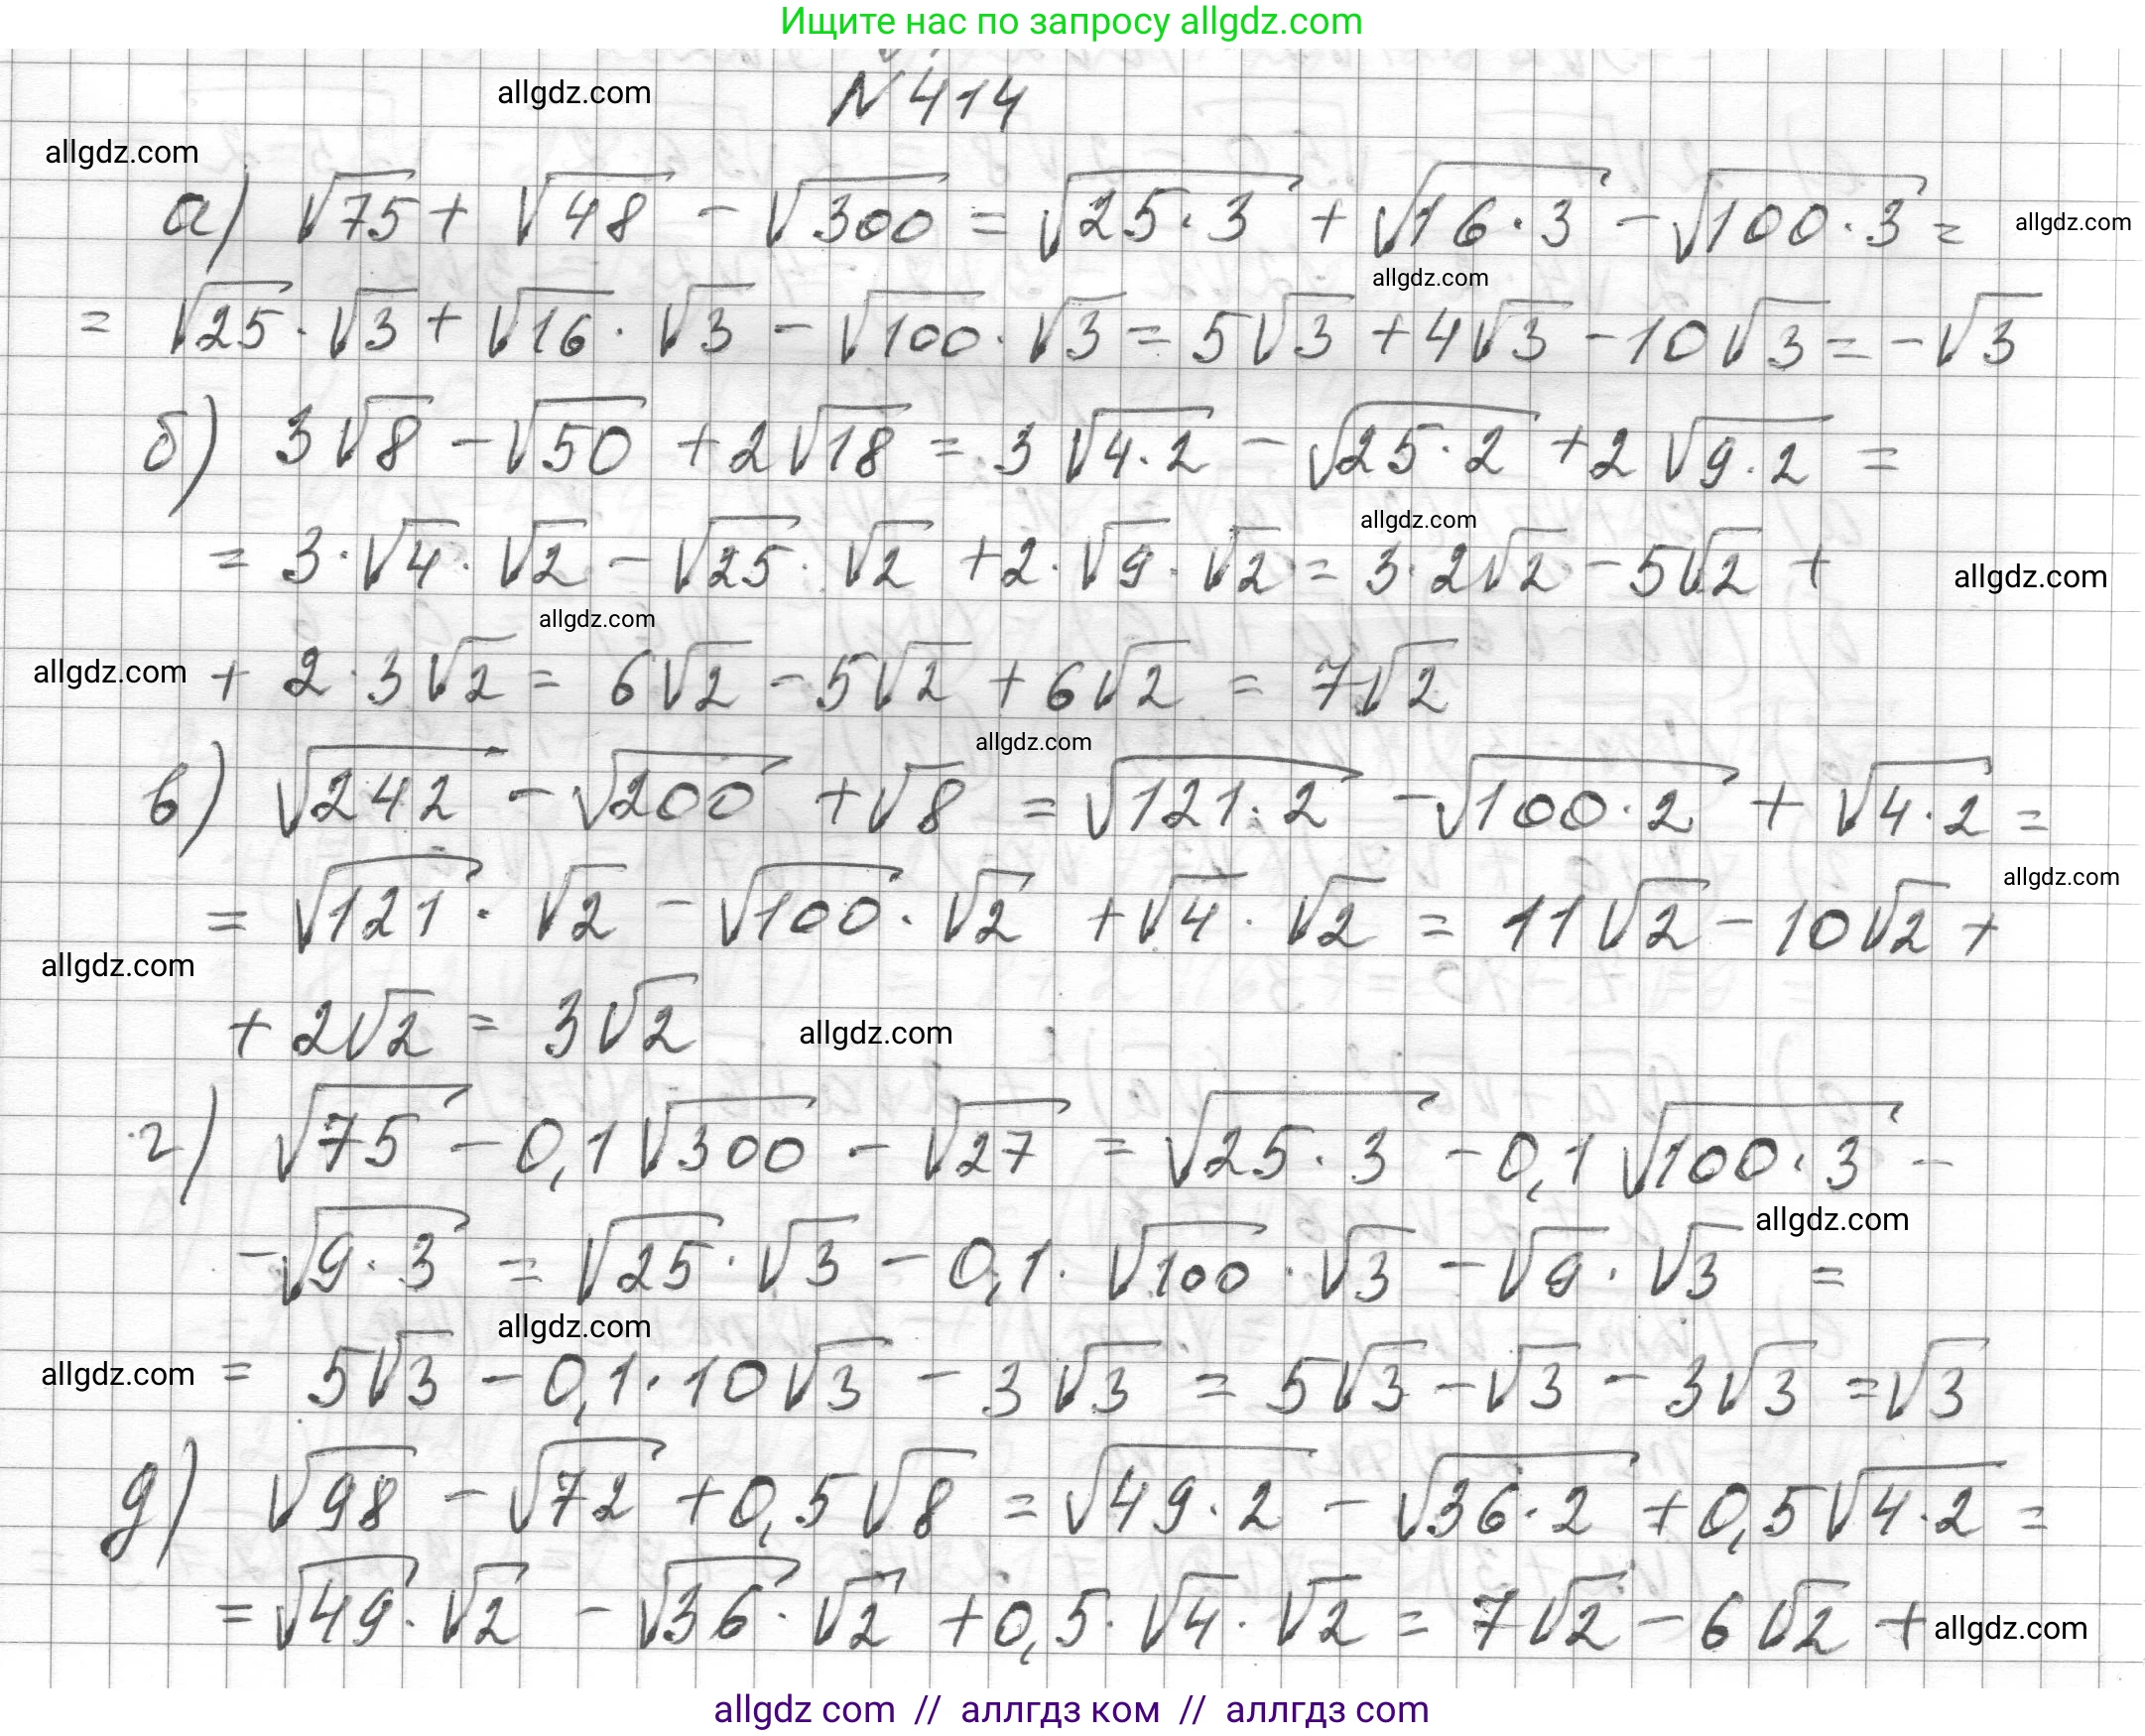 Ищите нас по запросу allgdz.com
allgdz.com
N 414
allgdz.com
а) √75 + √48 - √300 = √25·3 + √16·3 - √100·3 =
allgdz.com
allgdz.com
= √25 · √3 + √16 · √3 - √100 · √3 = 5√3 + 4√3 - 10√3 = -√3
б) 3√8 - √50 + 2√18 = 3√4·2 - √25·2 + 2√9·2 =
allgdz.com
= 3·√4·√2 - √25·√2 + 2·√9·√2 = 3·2√2 - 5√2 +
allgdz.com
allgdz.com
allgdz.com
+ 2·3√2 = 6√2 - 5√2 + 6√2 = 7√2
allgdz.com
в) √242 - √200 + √8 = √121·2 - √100·2 + √4·2 =
allgdz.com
= √121 · √2 - √100 · √2 + √4 · √2 = 11√2 - 10√2 +
allgdz.com
+ 2√2 = 3√2
allgdz.com
г) √75 - 0,1√300 - √27 = √25·3 - 0,1√100·3 -
allgdz.com
- √9·3 = √25·√3 - 0,1·√100·√3 - √9·√3 =
allgdz.com
allgdz.com
= 5√3 - 0,1·10√3 - 3√3 = 5√3 - √3 - 3√3 = √3
д) √98 - √72 + 0,5√8 = √49·2 - √36·2 + 0,5√4·2 =
= √49·√2 - √36·√2 + 0,5·√4·√2 = 7√2 - 6√2 +
allgdz.com
allgdz com // аллгдз ком // аллгдз com